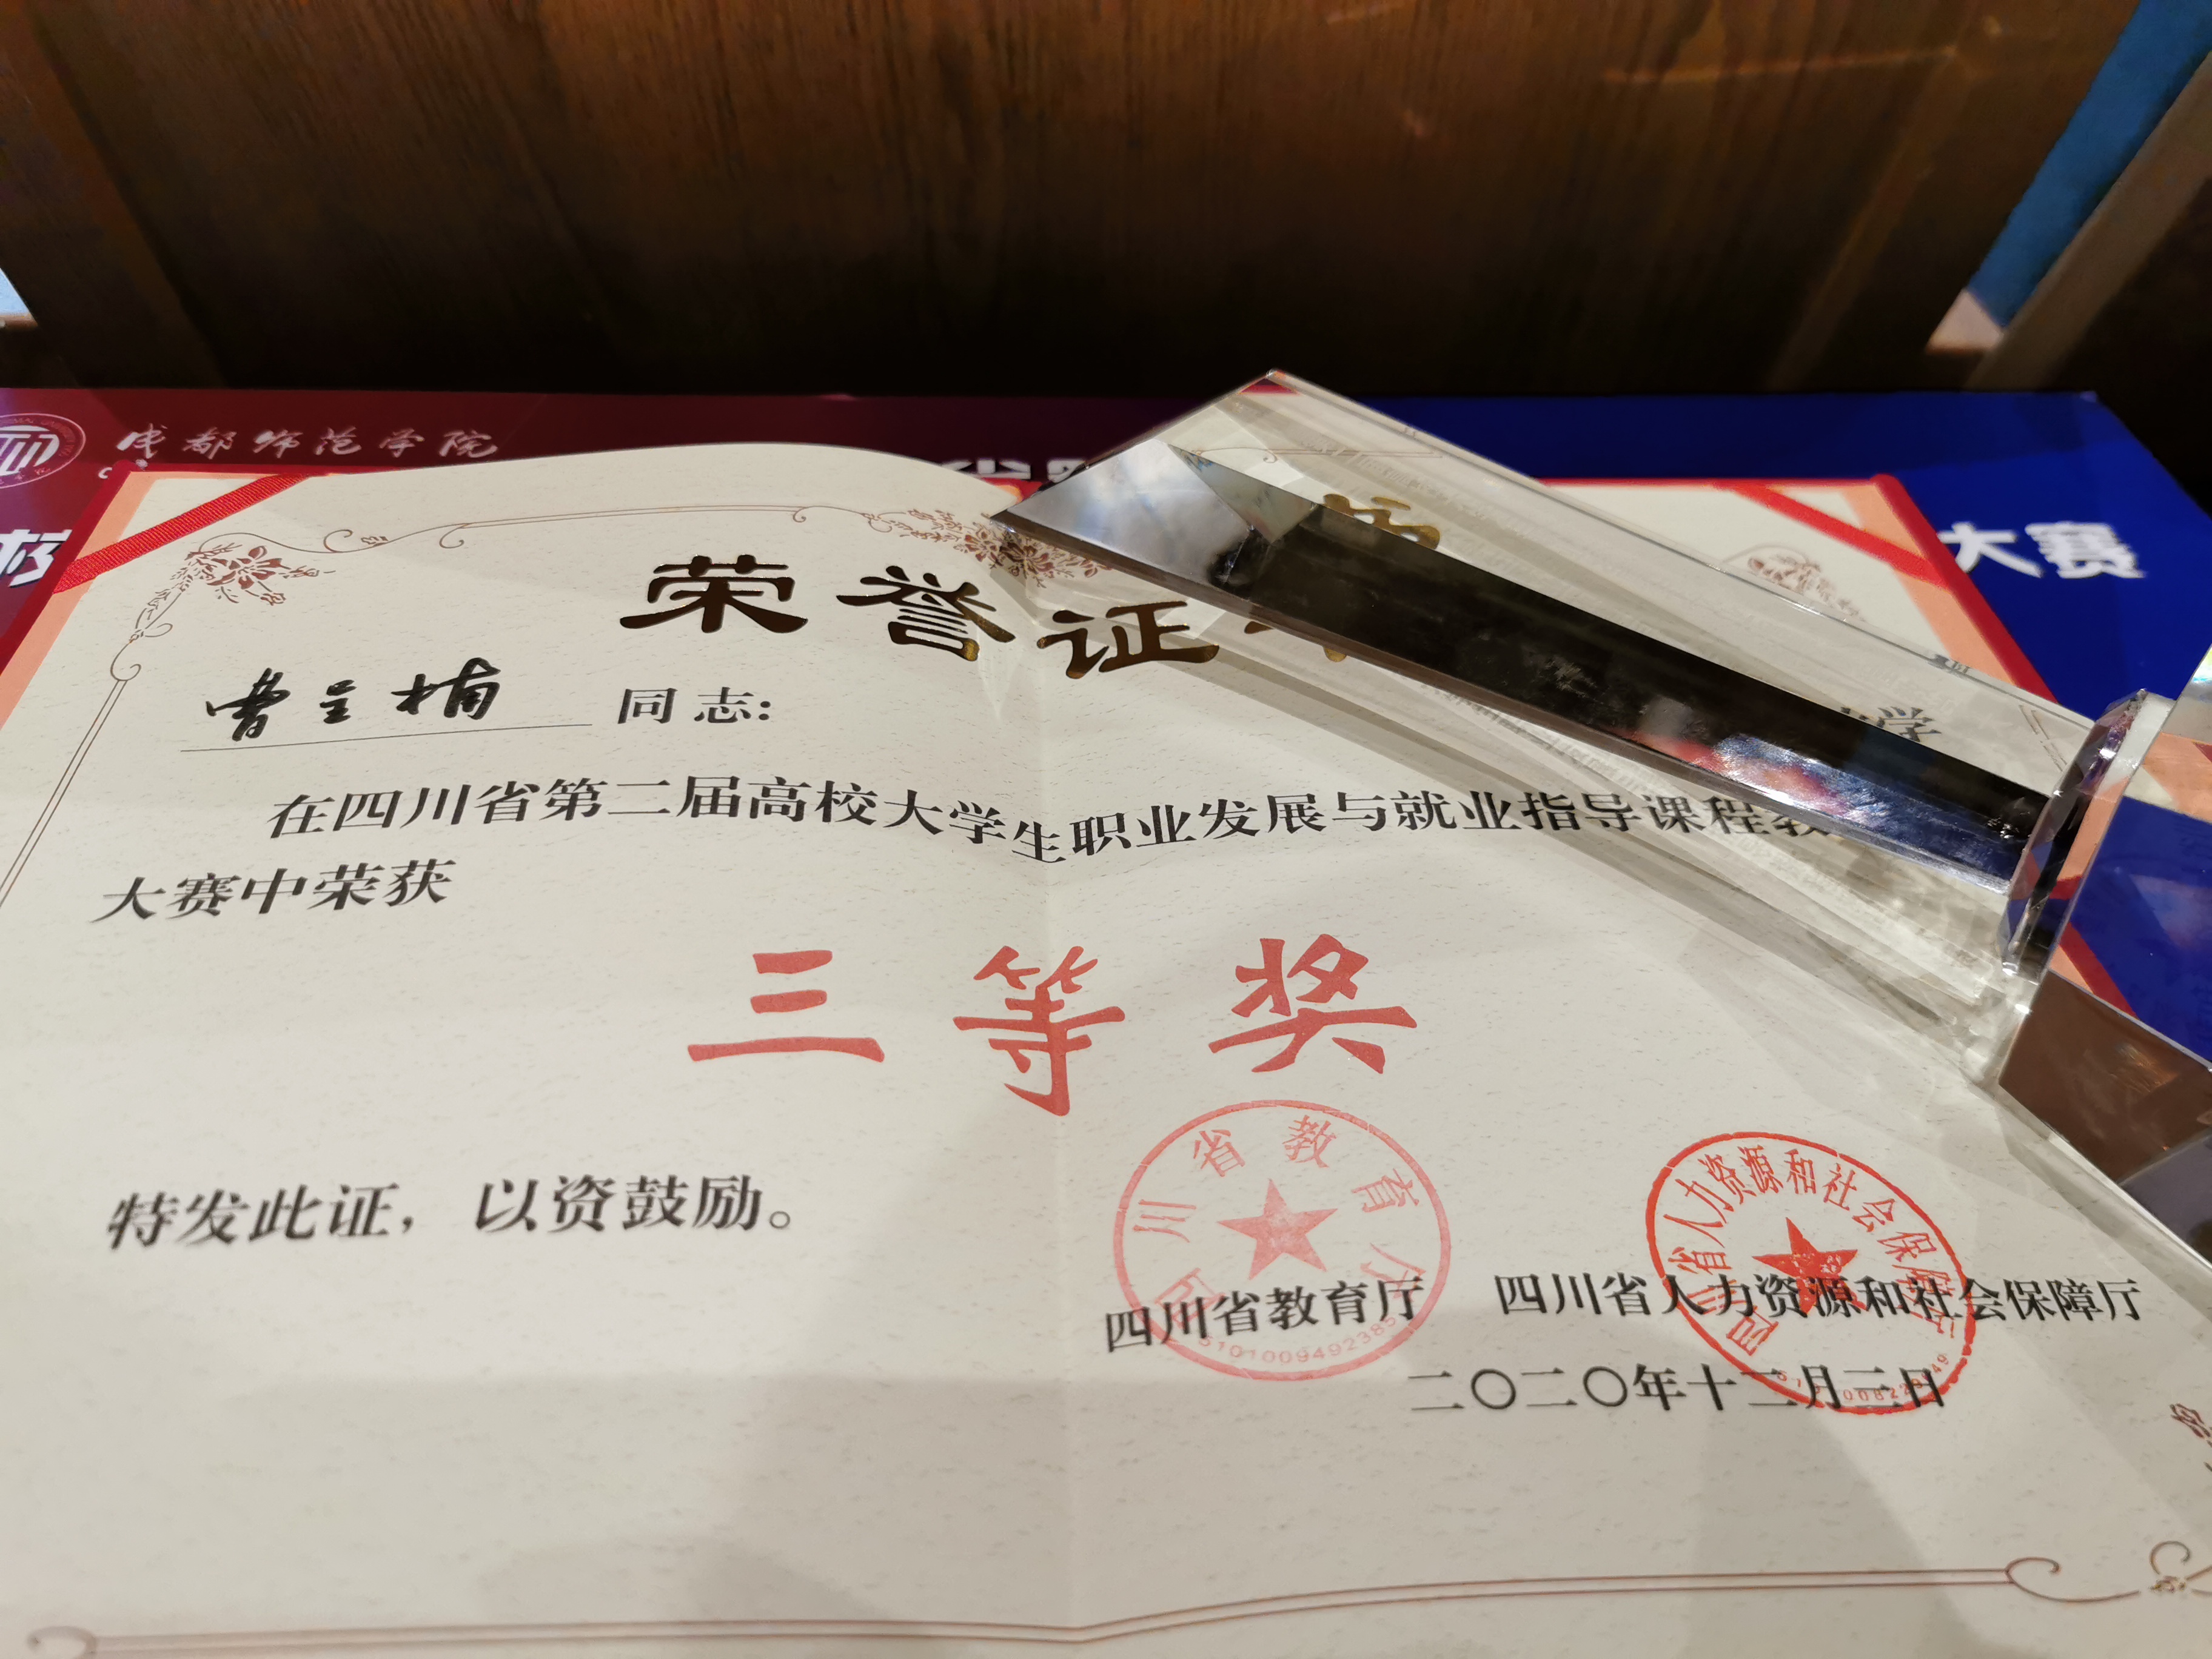 成都师范学院
校
大赛
荣誉证
同志:
学
在四川省第二届高校大学生职业发展与就业指导课程教
大赛中荣获
三等奖
特发此证，以资鼓励。
四川省教育厅
5101009492385
四川省人力资源和社会保障厅
四川省教育厅 四川省人力资源和社会保障厅
二〇二〇年十二月三日